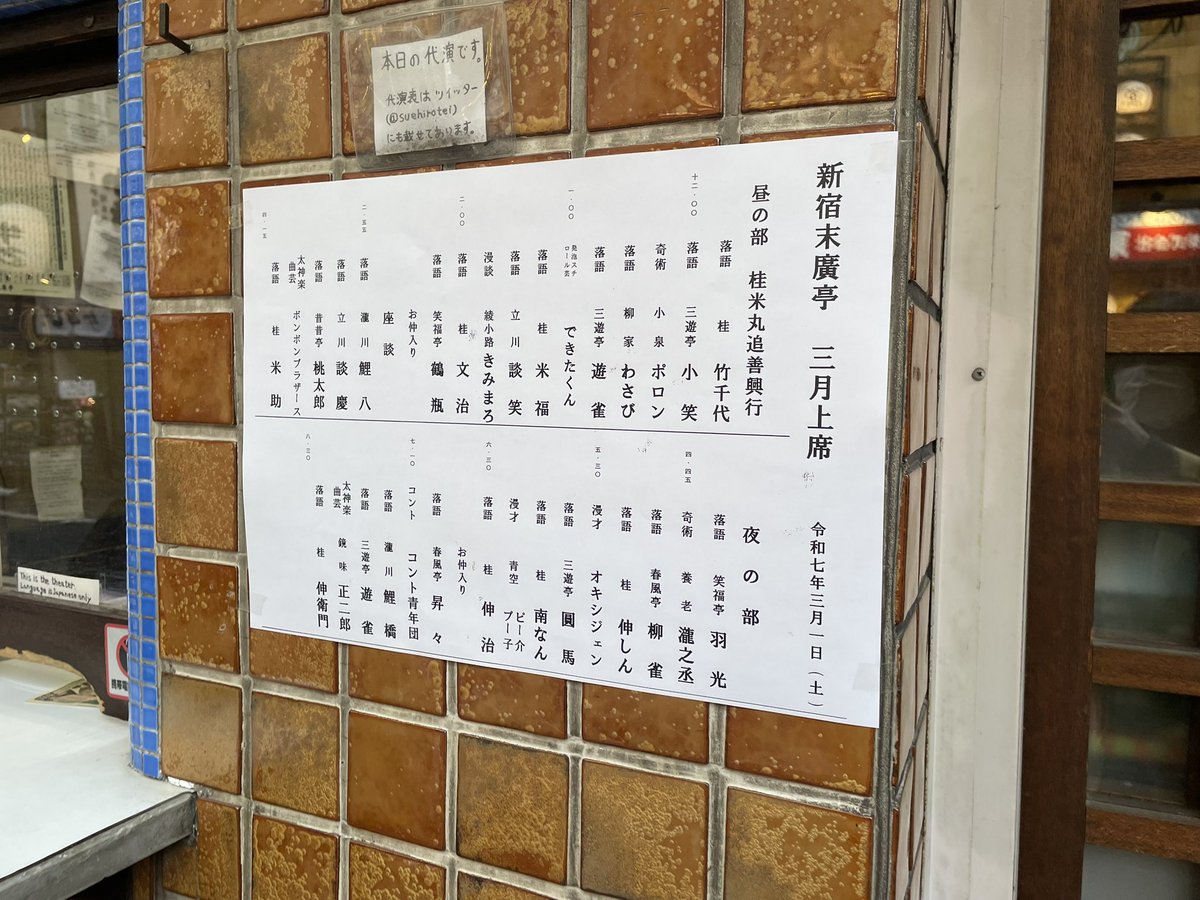 本日の代演です。
代演表はツイッター
(@suehirotei)
にも載せてあります。
新宿末廣亭 三月上席 令和七年三月一日(土)
昼の部 桂米丸追善興行
落語 桂 竹千代
十二・〇〇 落語 三遊亭 小笑
奇術 小泉 ポロン
落語 柳家 わさび
落語 三遊亭 遊雀
一・〇〇 発泡スチロール芸 できたくん
落語 桂 米福
落語 立川 談笑
漫談 綾小路 きみまろ
二・〇〇 落語 桂 文治
落語 笑福亭 鶴瓶
お仲入り
座談
二・五五 落語 瀧川 鯉八
落語 立川 談慶
落語 昔昔亭 桃太郎
太神楽曲芸 ボンボンブラザース
落語 桂 米助
四・一五
夜の部
落語 笑福亭 羽光
四・四五 奇術 養老 瀧之丞
落語 春風亭 柳雀
落語 桂 伸しん
五・三〇 漫才 オキシジェン
落語 三遊亭 圓馬
落語 桂 南なん
漫才 青空 ピー介 プー子
六・三〇 落語 桂 伸治
お仲入り
落語 春風亭 昇々
七・一〇 コント コント青年団
落語 瀧川 鯉橋
落語 三遊亭 遊雀
太神楽曲芸 鏡味 正二郎
落語 桂 伸衛門
八・三〇
This is the theater.
Language is Japanese only